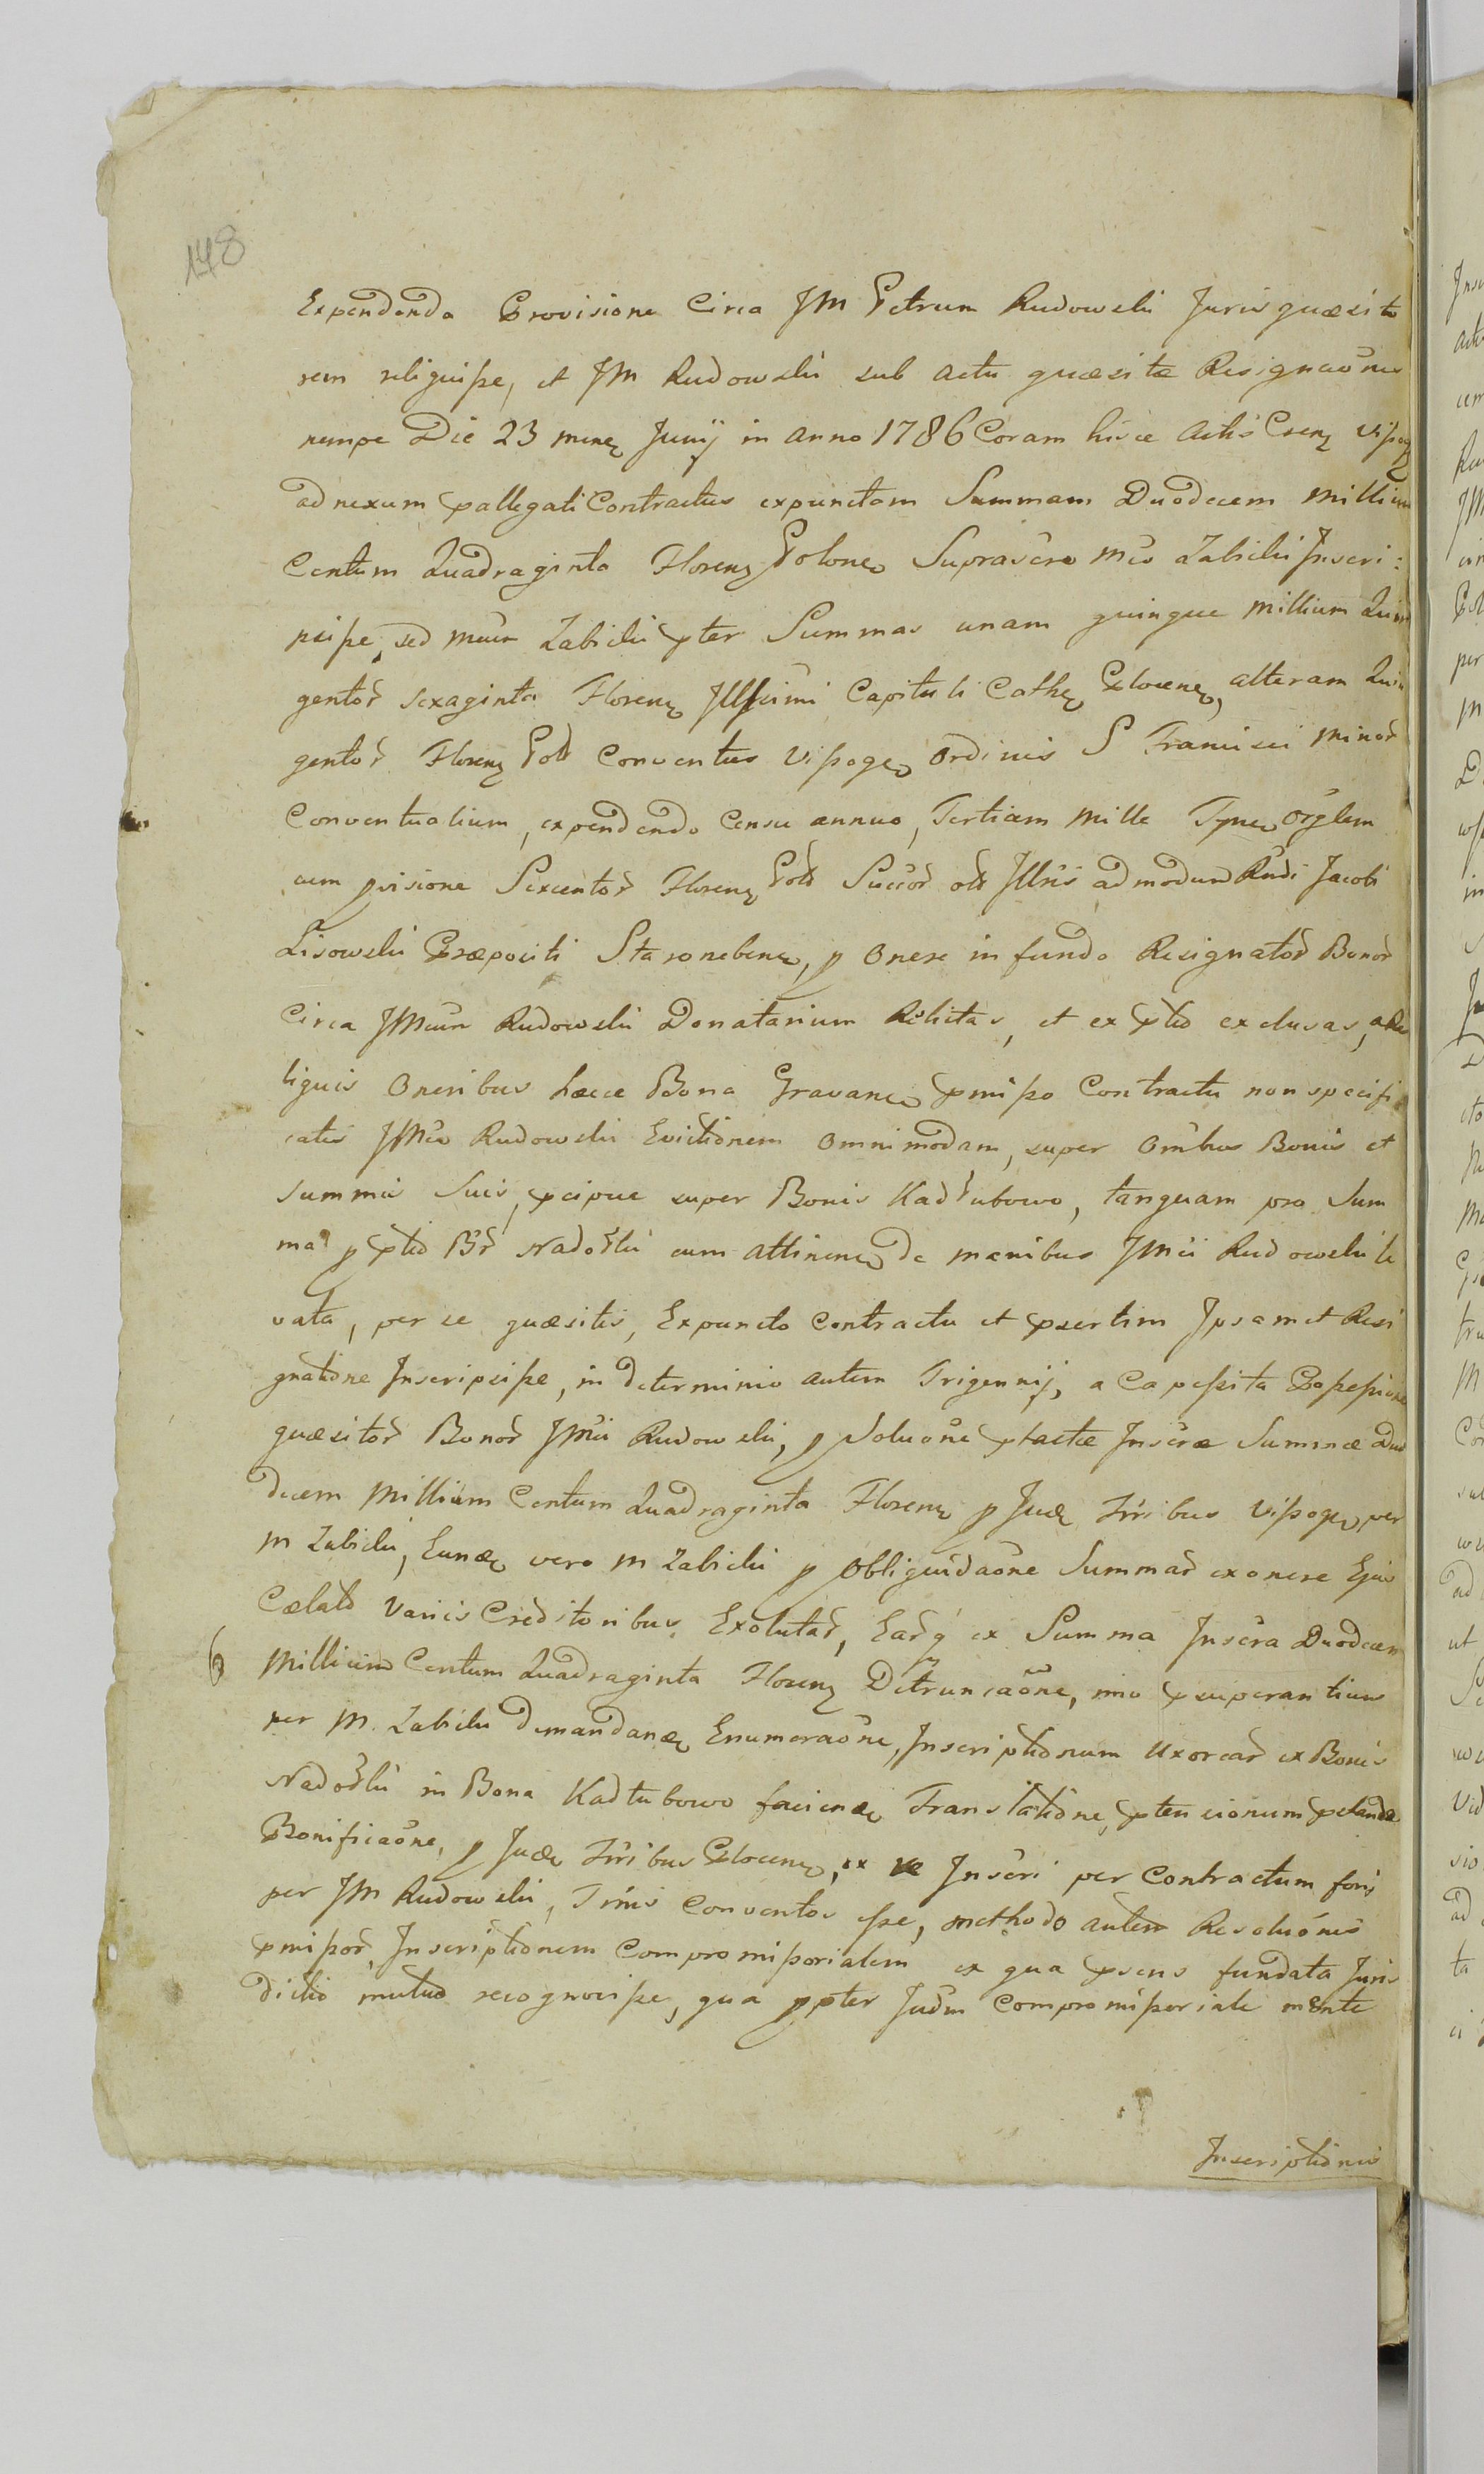 178
Expendenda Provisione Circa JM Petrum Rudowski Jurisquæsito
rem reliquisse, et JM Rudowski sub actu quæsitæ Resignaõnis
nempe Die 23 mens Junij in Anno 1786 Coram hisce Actis Visog
ad nexum pallegati Contractus expunctam Summam Duodecem Millium
Centum Quadraginta Floren Polone Suprascre Mco Zabicki Inscri:
psisse, sed Mcum Zabicki pter Summas unam quinque Millium Quin
gentor sexaginta Floren Illssimi Capituli Cathe Plocene, alteram Quin
gentor Floren Pol Conventus Vissoge Ordinis S Francisci Minor
Conventualium, expendendo Censu annuo, Tertiam Mille Tyne orglem
cum pvisione Sexcentor Floren Pol Succor ol Illris admodum Rndi Jacobi
Lisowski Præpositi Starorebene, p Onere in fundo Resignator Bonor
Circa JMcum Rudowski Donatarium Relictas, et ex ptio exclusas, a Re
liquis Oneribus hæcce Bona Gravane pmisso Contractu non specifi
catis JMco Rudowski Evictionem Omnimodam, super Omibus Bonis et
Summis Suis, pcipue super Bonis Kadłubowo, tanquam pro Sum
ma p ptio Br Nadołki cum attinene de manibus JMci Rudowski le
vata, per se quæsitis, Expuncto Contractu et psertim Ipsamet Resi
gnatione Inscripsisse, in determinio autem Trigennij, a Capessita Possessione
quæsitor Bonor JMci Rudowski, p Soluone ptactæ Inscræ Summæ Duo
decem Millium Centum Quadraginta Floren p Jude Tribus Vissoge, per
M Zabicki, Eunde vero M Zabicki p Obliquidaone Summar ex onere Ejus
Cælato Variis Creditoribus Exolutar, Earq ex Summa Inscra Duodecem
Millium Centum Quadraginta Floren Detruncaõne, imo psuperantium
per M. Zabicki demandande Enumeraone, Inscriptionum Uxorear ex Bonis
Nadołki in Bona Kadłubowo faciende Translatione, ptensionum pstanda
Bonificaõne, p Jude Tribus Plocene, ex Inscri per Contractum foris
per JM Rudowski, Trinis Conventos esse, methodo autem Resoluonis
pmissor, Inscriptionem Compromissorialem ex qua psens fundata Juris
dictio mutuo recognovisse, qua ppter Judm Compromissoriale mente
Inscriptionis